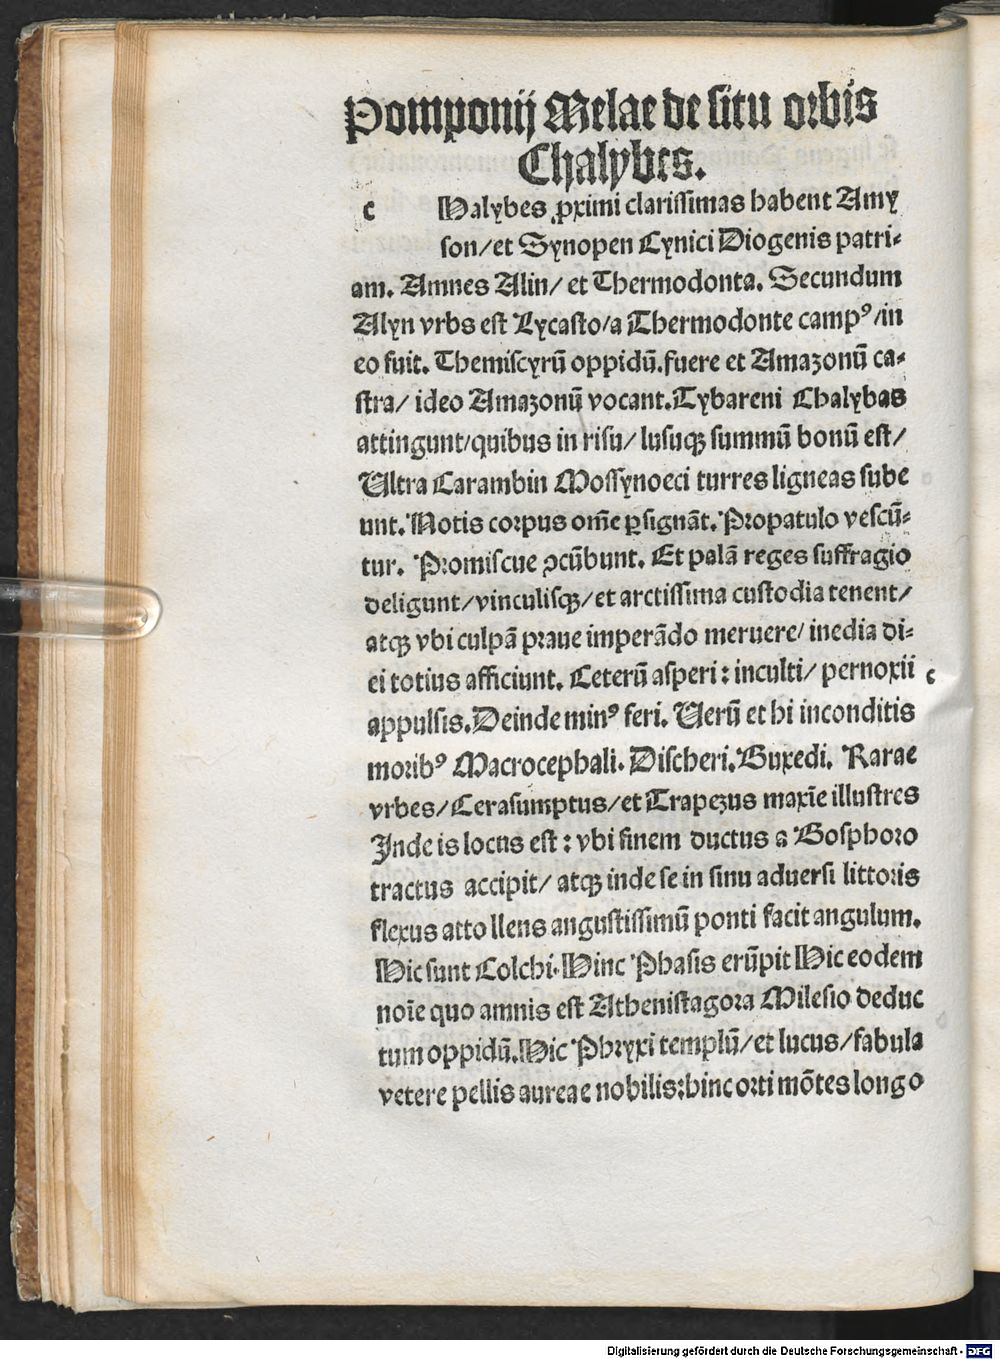 Pomponij Melae de situ orbis
Chalybes.
c Halybes ꝓximi clarissimas habent Amy
son/et Synopen Cynici Diogenis patri⸗
am. Amnes Alin/ et Thermodonta. Secundum
Alyn vrbs est Lycasto/a Thermodonte campꝰ/in
eo fuit. Themiscyrū oppidū.fuere et Amazonū ca⸗
stra/ ideo Amazonū vocant.Tybareni Chalybas
attingunt/quibus in risu/ lusuqꝫ summū bonū est/
Ultra Carambin Mossynoeci turres ligneas sube
unt. Notis corpus om̄e ꝑsignāt. Propatulo vescū⸗
tur. Promiscue ꝯcūbunt. Et palā reges suffragio
deligunt/vinculisqꝫ/et arctissima custodia tenent/
atqꝫ vbi culpā praue imperādo meruere/ inedia di⸗
ei totius afficiunt. Ceterū asperi : inculti/ pernoxii c
appulsis. Deinde minꝰ feri. Uerū et hi inconditis
moribꝰ Macrocephali. Discheri. Buxedi. Rarae
vrbes/Cerasumptus/et Trapezus maxīe illustres
Inde is locus est : vbi finem ductus a Bosphoro
tractus accipit/ atqꝫ inde se in sinu aduersi littoris
flexus atto llens angustissimū ponti facit angulum.
Hic sunt Colchi. Hinc Phasis erūpit Hic eodem
noīe quo amnis est Athenistagora Milesio deduc
tum oppidū.Hic Phryxi templū/et lucus/fabula
vetere pellis aureae nobilis:hinc orti mōtes longo
Digitalisierung gefördert durch die Deutsche Forschungsgemeinschaft - DFG